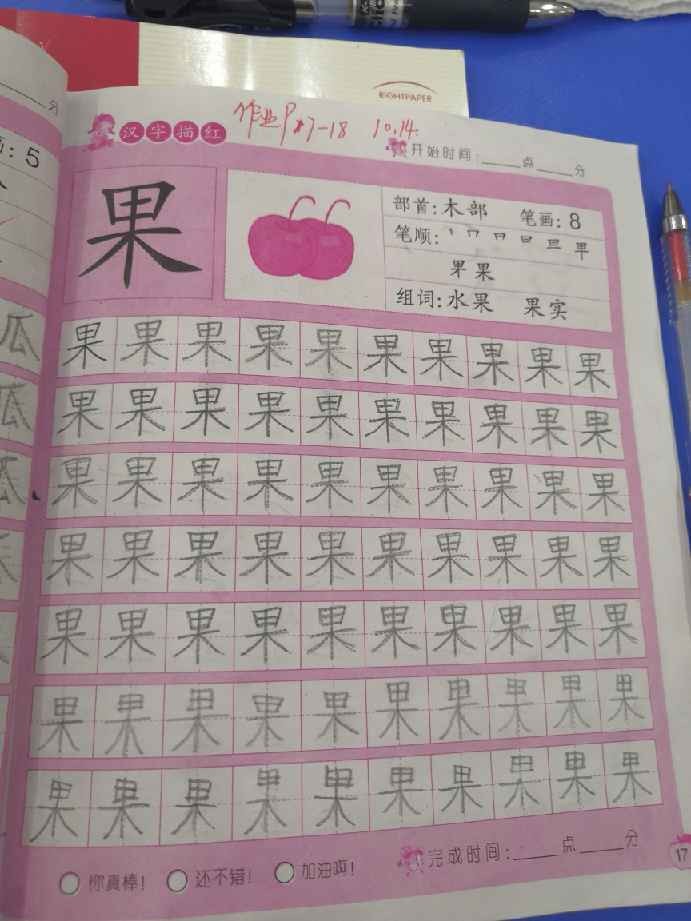 EIGHTPAPER
作业P17-18 10.14.
汉字描红
开始时间：____点____分
分
画：5
果
部首：木部 笔画：8
笔顺：丨 冂 日 旦 早
果果
组词：水果 果实
果果果果果果果果果果
果果果果果果果果果果
果果果果果果果果果果
果果果果果果果果果果
果果果果果果果果果果
果果果果果果果果果果
果果果果果果果果果果
瓜
瓜
瓜
完成时间：____点____分
你真棒！ 还不错！ 加油啊！
17